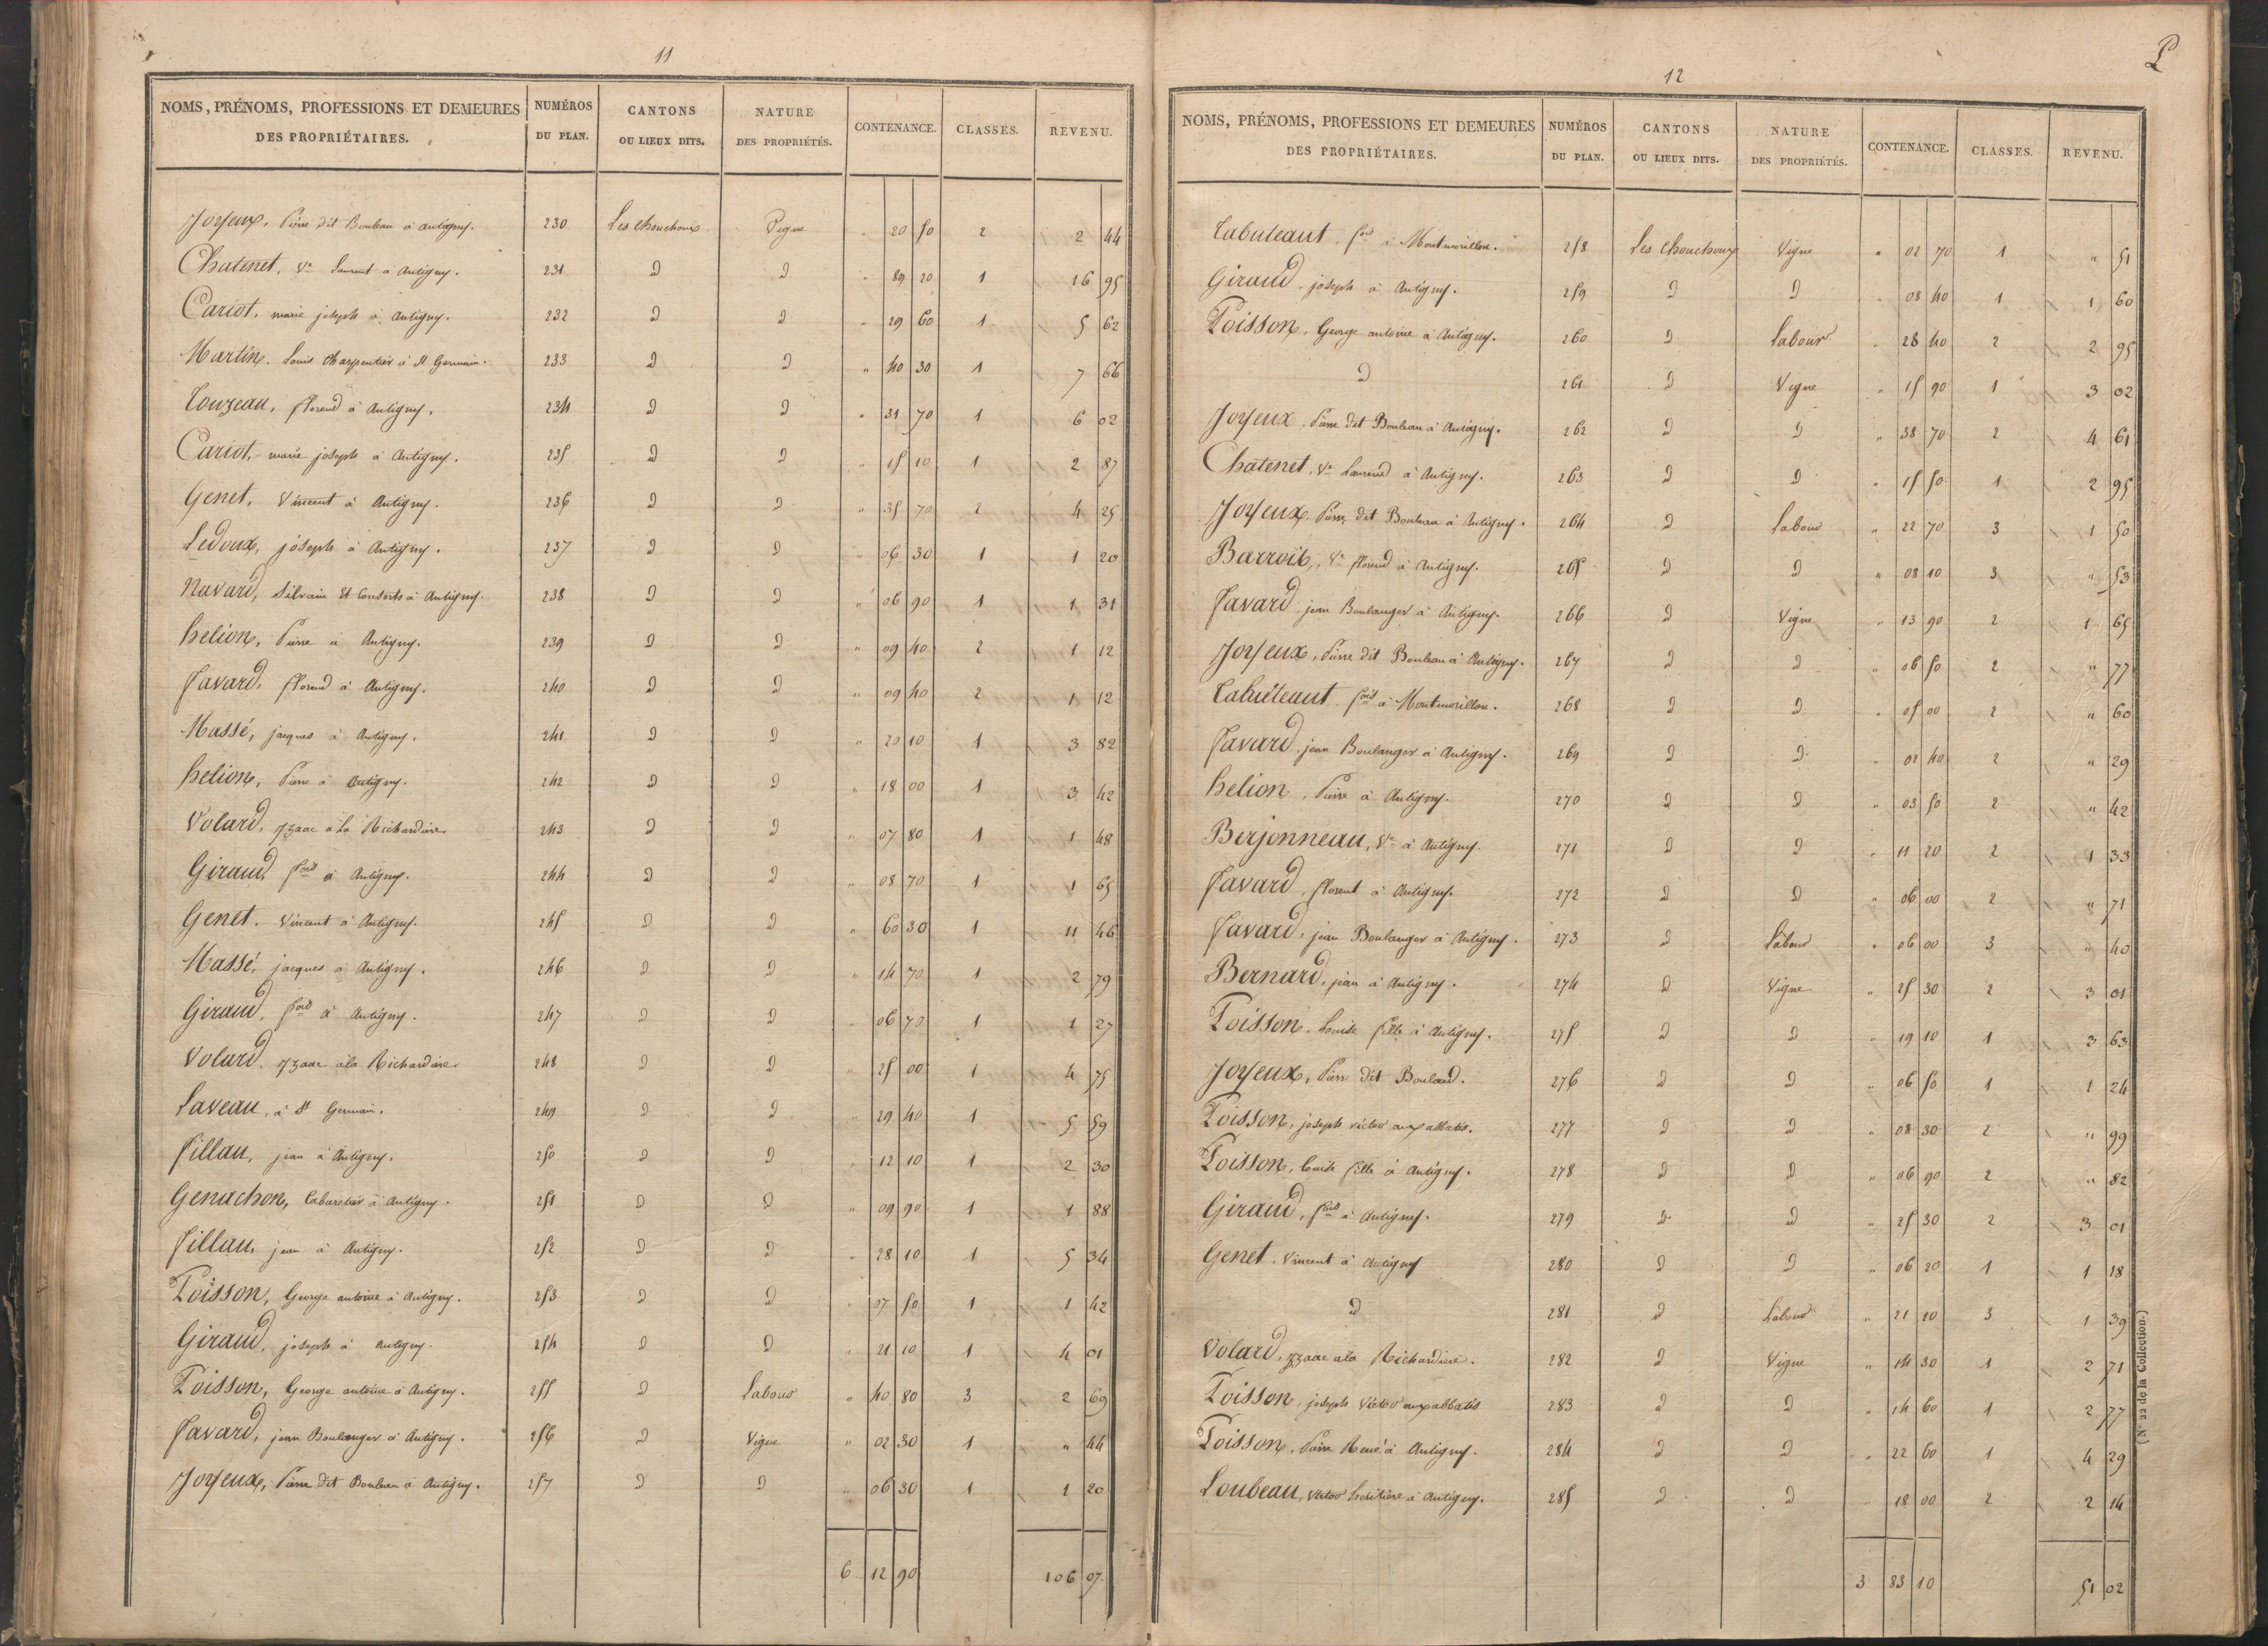 11
NOMS, PRÉNOMS, PROFESSIONS ET DEMEURES DES PROPRIÉTAIRES. NUMÉROS DU PLAN. CANTONS OU LIEUX DITS. NATURE DES PROPRIÉTÉS. CONTENANCE. CLASSES. REVENU.
Joyeux, Pierre dit Bouleau à Antigny. 230 Les chouchoux Vigne " 20 50 2 2 44
Chatenet, Ve Laurent à Antigny. 231 D D " 89 20 1 16 95
Cariot, marie joseph à Antigny. 232 D D " 29 60 1 5 62
Martin, Louis Charpentier à St Germain. 233 D D " 40 30 1 7 66
Touzeau, florend à Antigny. 234 D D " 31 70 1 6 02
Cariot, marie joseph à Antigny. 235 D D " 15 10 1 2 87
Genet, Vincent à Antigny. 236 D D " 35 70 2 4 25
Ledoux, joseph à Antigny. 237 D D " 06 30 1 1 20
Navard, Silvain Et Consorts à Antigny. 238 D D " 06 90 1 1 31
helion, Pierre à Antigny. 239 D D " 09 40 2 1 12
Favard, florend à Antigny. 240 D D " 09 40 2 1 12
Massé, jacques à Antigny. 241 D D " 20 10 1 3 82
helion, Pierre à Antigny. 242 D D " 18 00 1 3 42
Volard, yzaac à la Richardière 243 D D " 07 80 1 1 48
Giraud, fois à Antigny. 244 D D " 08 70 1 1 65
Genet, Vincent à Antigny. 245 D D " 60 30 1 11 46
Massé, jacques à Antigny. 246 D D " 14 70 1 2 79
Giraud, fois à Antigny. 247 D D " 06 70 1 1 27
Volard, yzaac à la Richardière 248 D D " 25 00 1 4 75
Laveau, à St Germain. 249 D D " 29 40 1 5 59
Fillau, jean à Antigny. 250 D D " 12 10 1 2 30
Genachon, Cabaretier à Antigny. 251 D D " 09 90 1 1 88
Fillau, jean à Antigny. 252 D D " 28 10 1 5 34
Poisson, George antoine à Antigny. 253 D D " 07 50 1 1 42
Giraud, joseph à Antigny. 254 D D " 21 10 1 4 01
Poisson, George antoine à Antigny. 255 D Labour " 40 80 3 2 69
Favard, jean Boulanger à Antigny. 256 D Vigne " 02 30 1 " 44
Joyeux, Pierre dit Bouleau à Antigny. 257 D D " 06 30 1 1 20
6 12 90 106 07
12
NOMS, PRÉNOMS, PROFESSIONS ET DEMEURES DES PROPRIÉTAIRES. NUMÉROS DU PLAN. CANTONS OU LIEUX DITS. NATURE DES PROPRIÉTÉS. CONTENANCE. CLASSES. REVENU.
Tabuteaut, fois à Montmorillon. 258 Les chouchoux Vigne " 02 70 1 " 51
Giraud, joseph à Antigny. 259 D D " 08 40 1 1 60
Poisson, George antoine à Antigny. 260 D Labour " 28 40 2 2 95
D 261 D Vigne " 15 90 1 3 02
Joyeux, Pierre dit Bouleau à Antigny. 262 D D " 38 70 2 4 61
Chatenet, Ve Laurend à Antigny. 263 D D " 15 50 1 2 95
Joyeux, Pierre dit Bouleau à Antigny. 264 D Labour " 22 70 3 1 50
Barroit, Ve florend à Antigny. 265 D D " 08 10 3 " 53
Favard, jean Boulanger à Antigny. 266 D Vigne " 13 90 2 1 65
Joyeux, Pierre dit Bouleau à Antigny. 267 D D " 06 50 2 " 77
Tabuteaut, fois à Montmorillon. 268 D D " 05 00 2 " 60
Favard, jean Boulanger à Antigny. 269 D D " 02 40 2 " 29
helion, Pierre à Antigny. 270 D D " 03 50 2 " 42
Berjonneau, Ve à Antigny. 271 D D " 11 20 2 1 33
Favard, florent à Antigny. 272 D D " 06 00 2 " 71
Favard, jean Boulanger à Antigny. 273 D Labour " 06 00 3 " 40
Bernard, jean à Antigny. 274 D Vigne " 25 30 2 3 01
Poisson, Louise fille à Antigny. 275 D D " 19 10 1 3 63
Joyeux, Pierre dit Bouleaud. 276 D D " 06 50 1 1 24
Poisson, joseph victor aux abbatis. 277 D D " 08 30 2 " 99
Poisson, Louise fille à Antigny. 278 D D " 06 90 2 " 82
Giraud, fois à Antigny. 279 D D " 25 30 2 3 01
Genet, Vincent à Antigny 280 D D " 06 20 1 1 18
D 281 D Labour " 21 10 3 1 39
Volard, yzaac à la Richardière. 282 D Vigne " 14 30 1 2 71
Poisson, joseph Victor aux abbatis 283 D D " 14 60 1 2 77
Poisson, Pierre René à Antigny. 284 D D " 22 60 1 4 29
Loubeau, Victor heritière à Antigny. 285 D D " 18 00 2 2 14
3 83 10 51 02
(N° 22 de la Collection.)